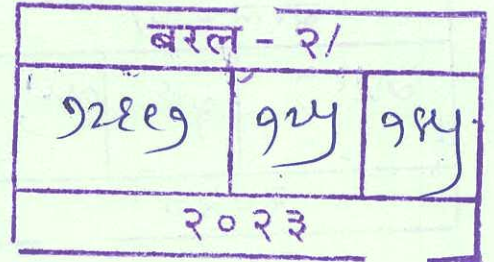 बरल - २/
१२६९१ १२५ १४५
२०२३